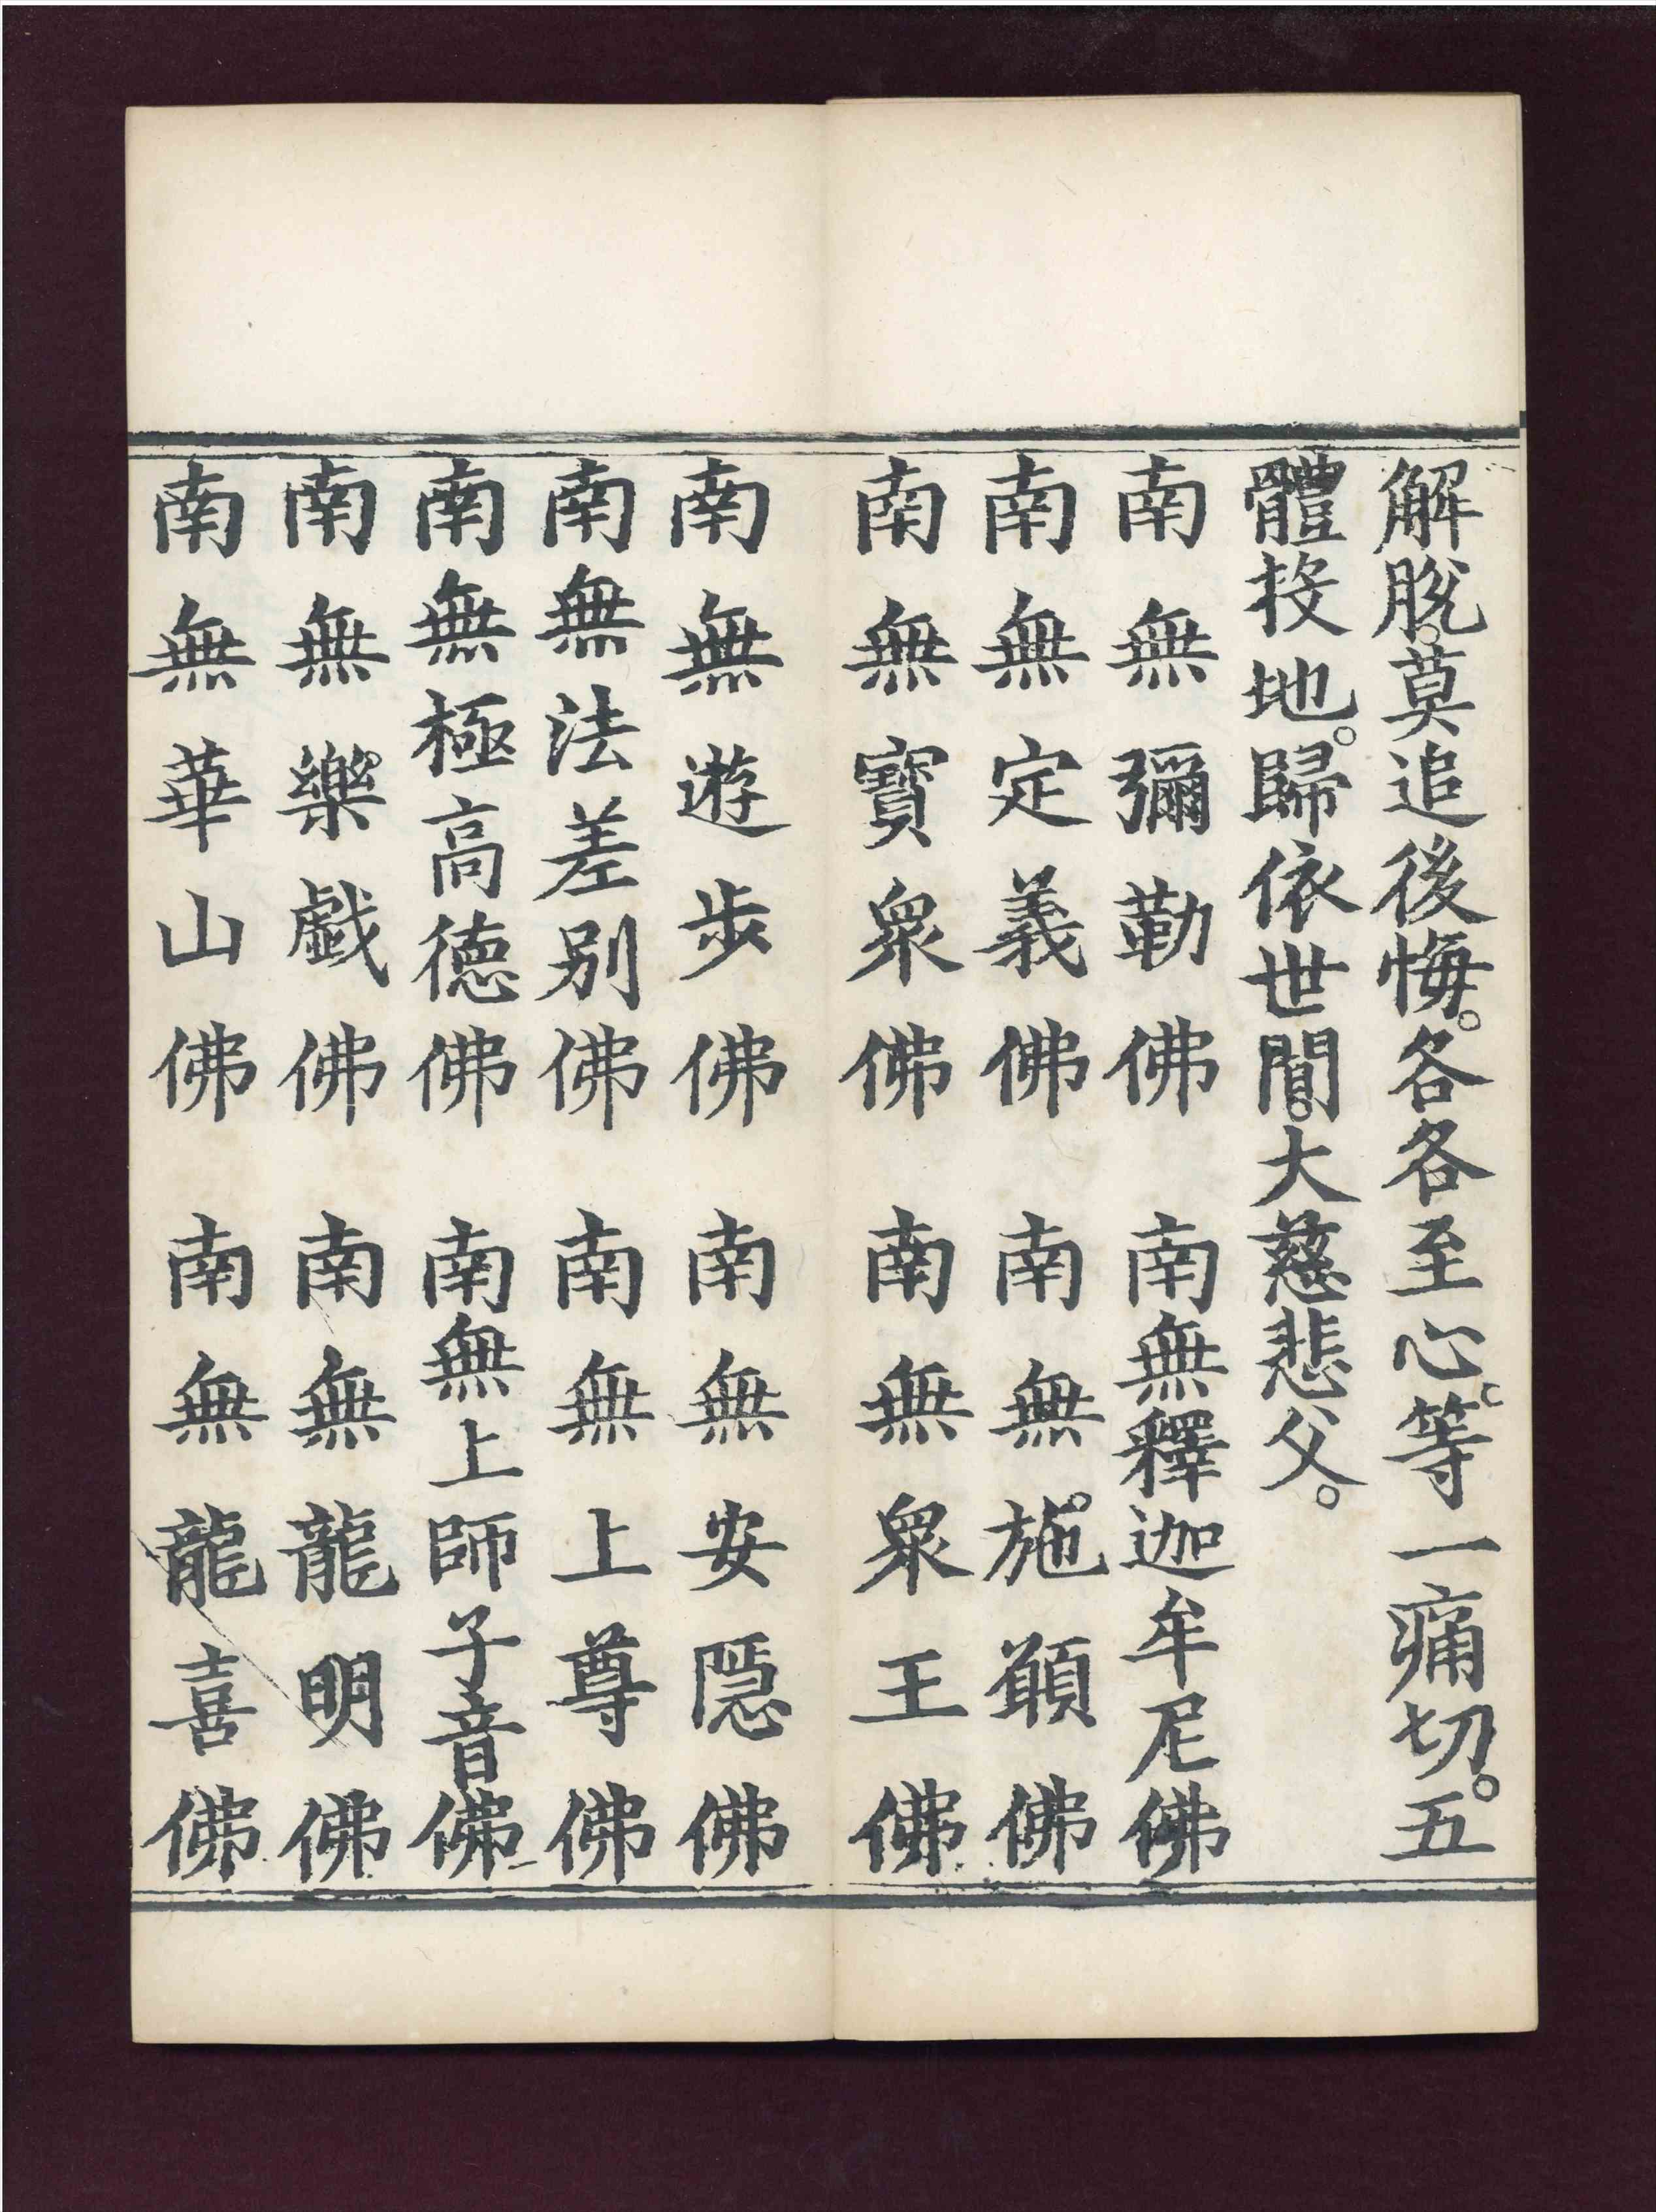 解脫。莫追後悔。各各至心。等一痛切。五
體投地。歸依世間。大慈悲父。
南無彌勒佛　南無釋迦牟尼佛
南無定義佛　南無施願佛
南無寶衆佛　南無衆王佛
南無遊步佛　南無安隱佛
南無法差別佛　南無上尊佛
南無極高德佛　南無上師子音佛
南無樂戲佛　南無龍明佛
南無華山佛　南無龍喜佛